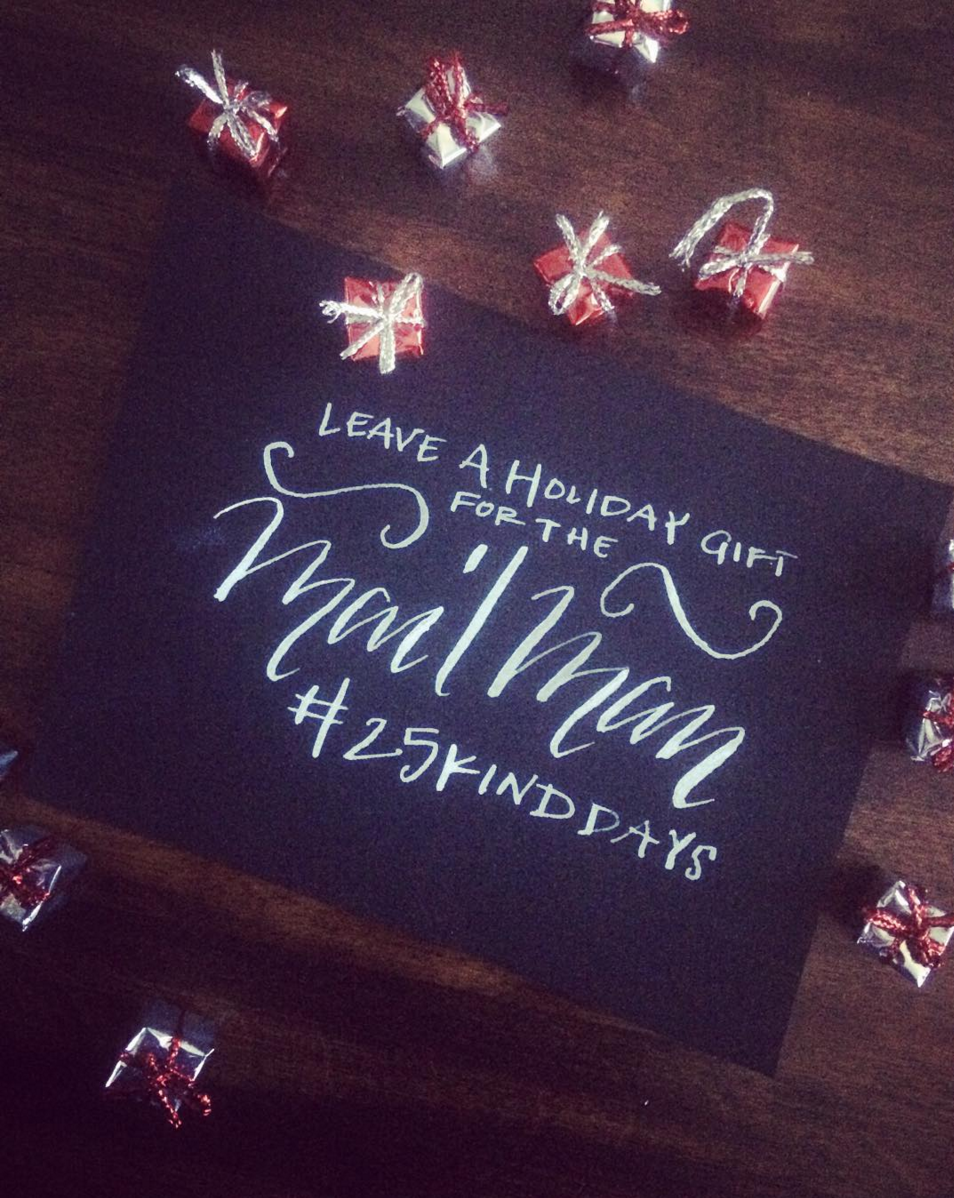 LEAVE A HOLIDAY GIFT
FOR THE
Mail Man
#25KINDDAYS